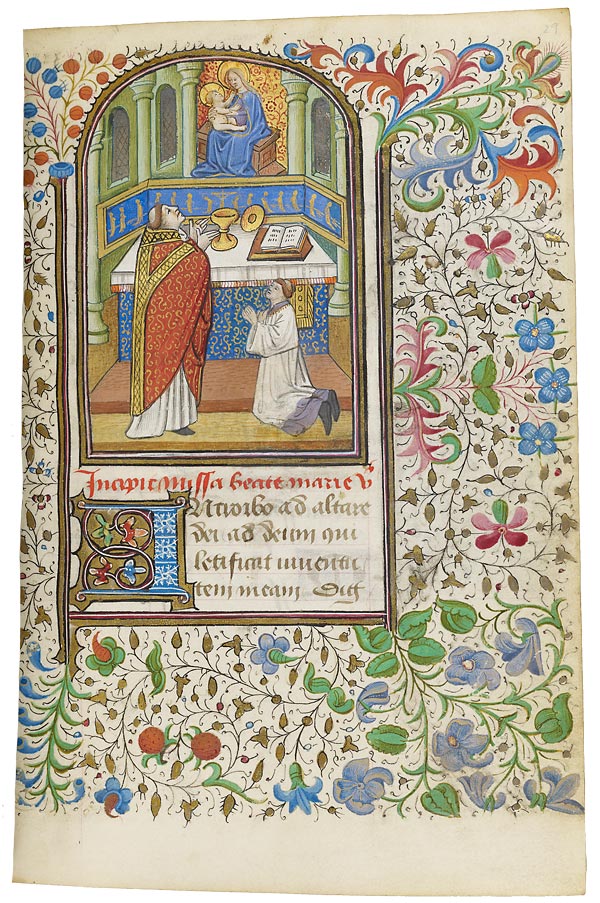 29
Incipit missa beate marie v
INtroibo ad altare
dei ad deum qui
letificat iuuentu
tem meam Dig